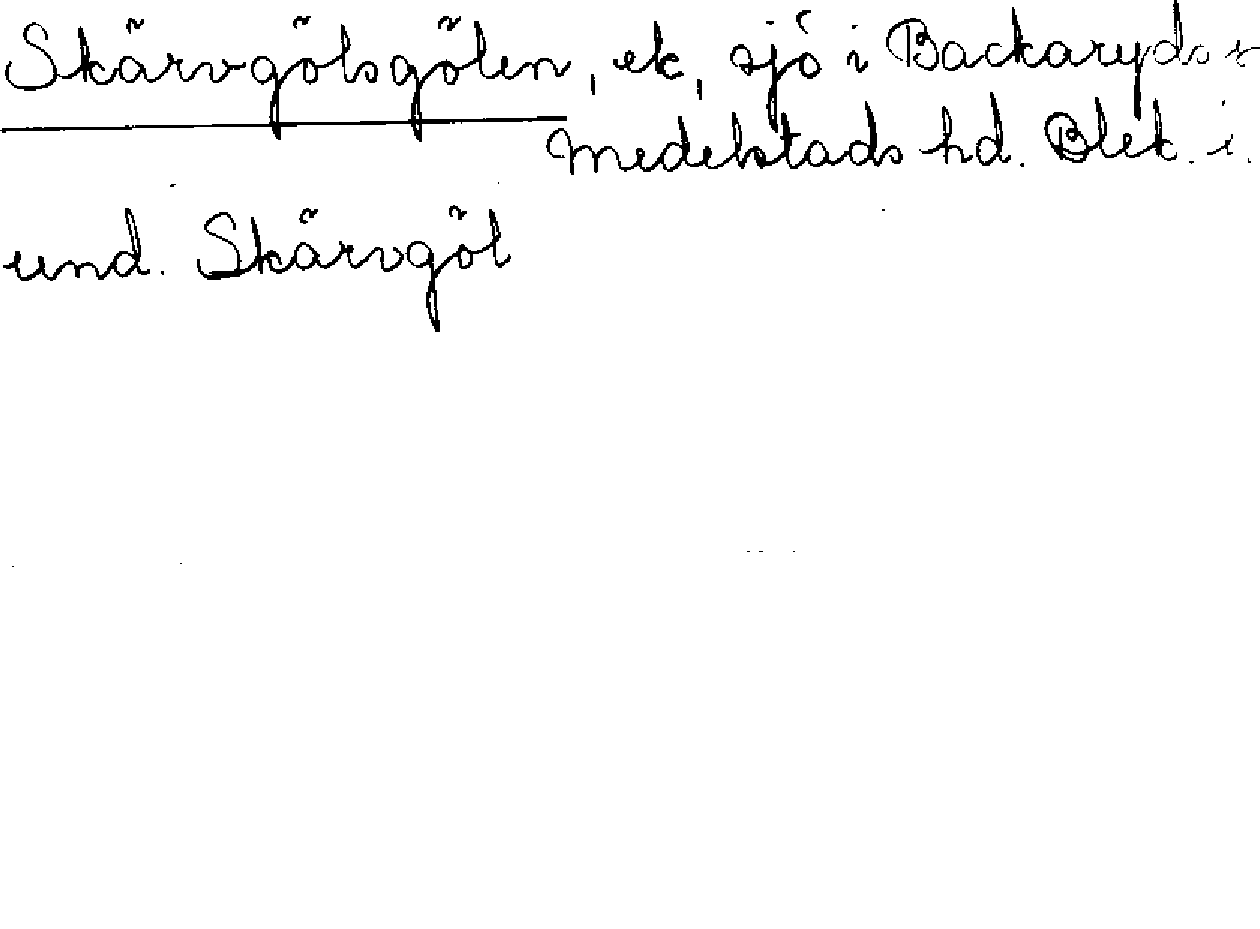 Skärvgölsgölen, ek, sjö i Backaryds s
Medelstads hd. Blek. l.
und. Skärvgöl